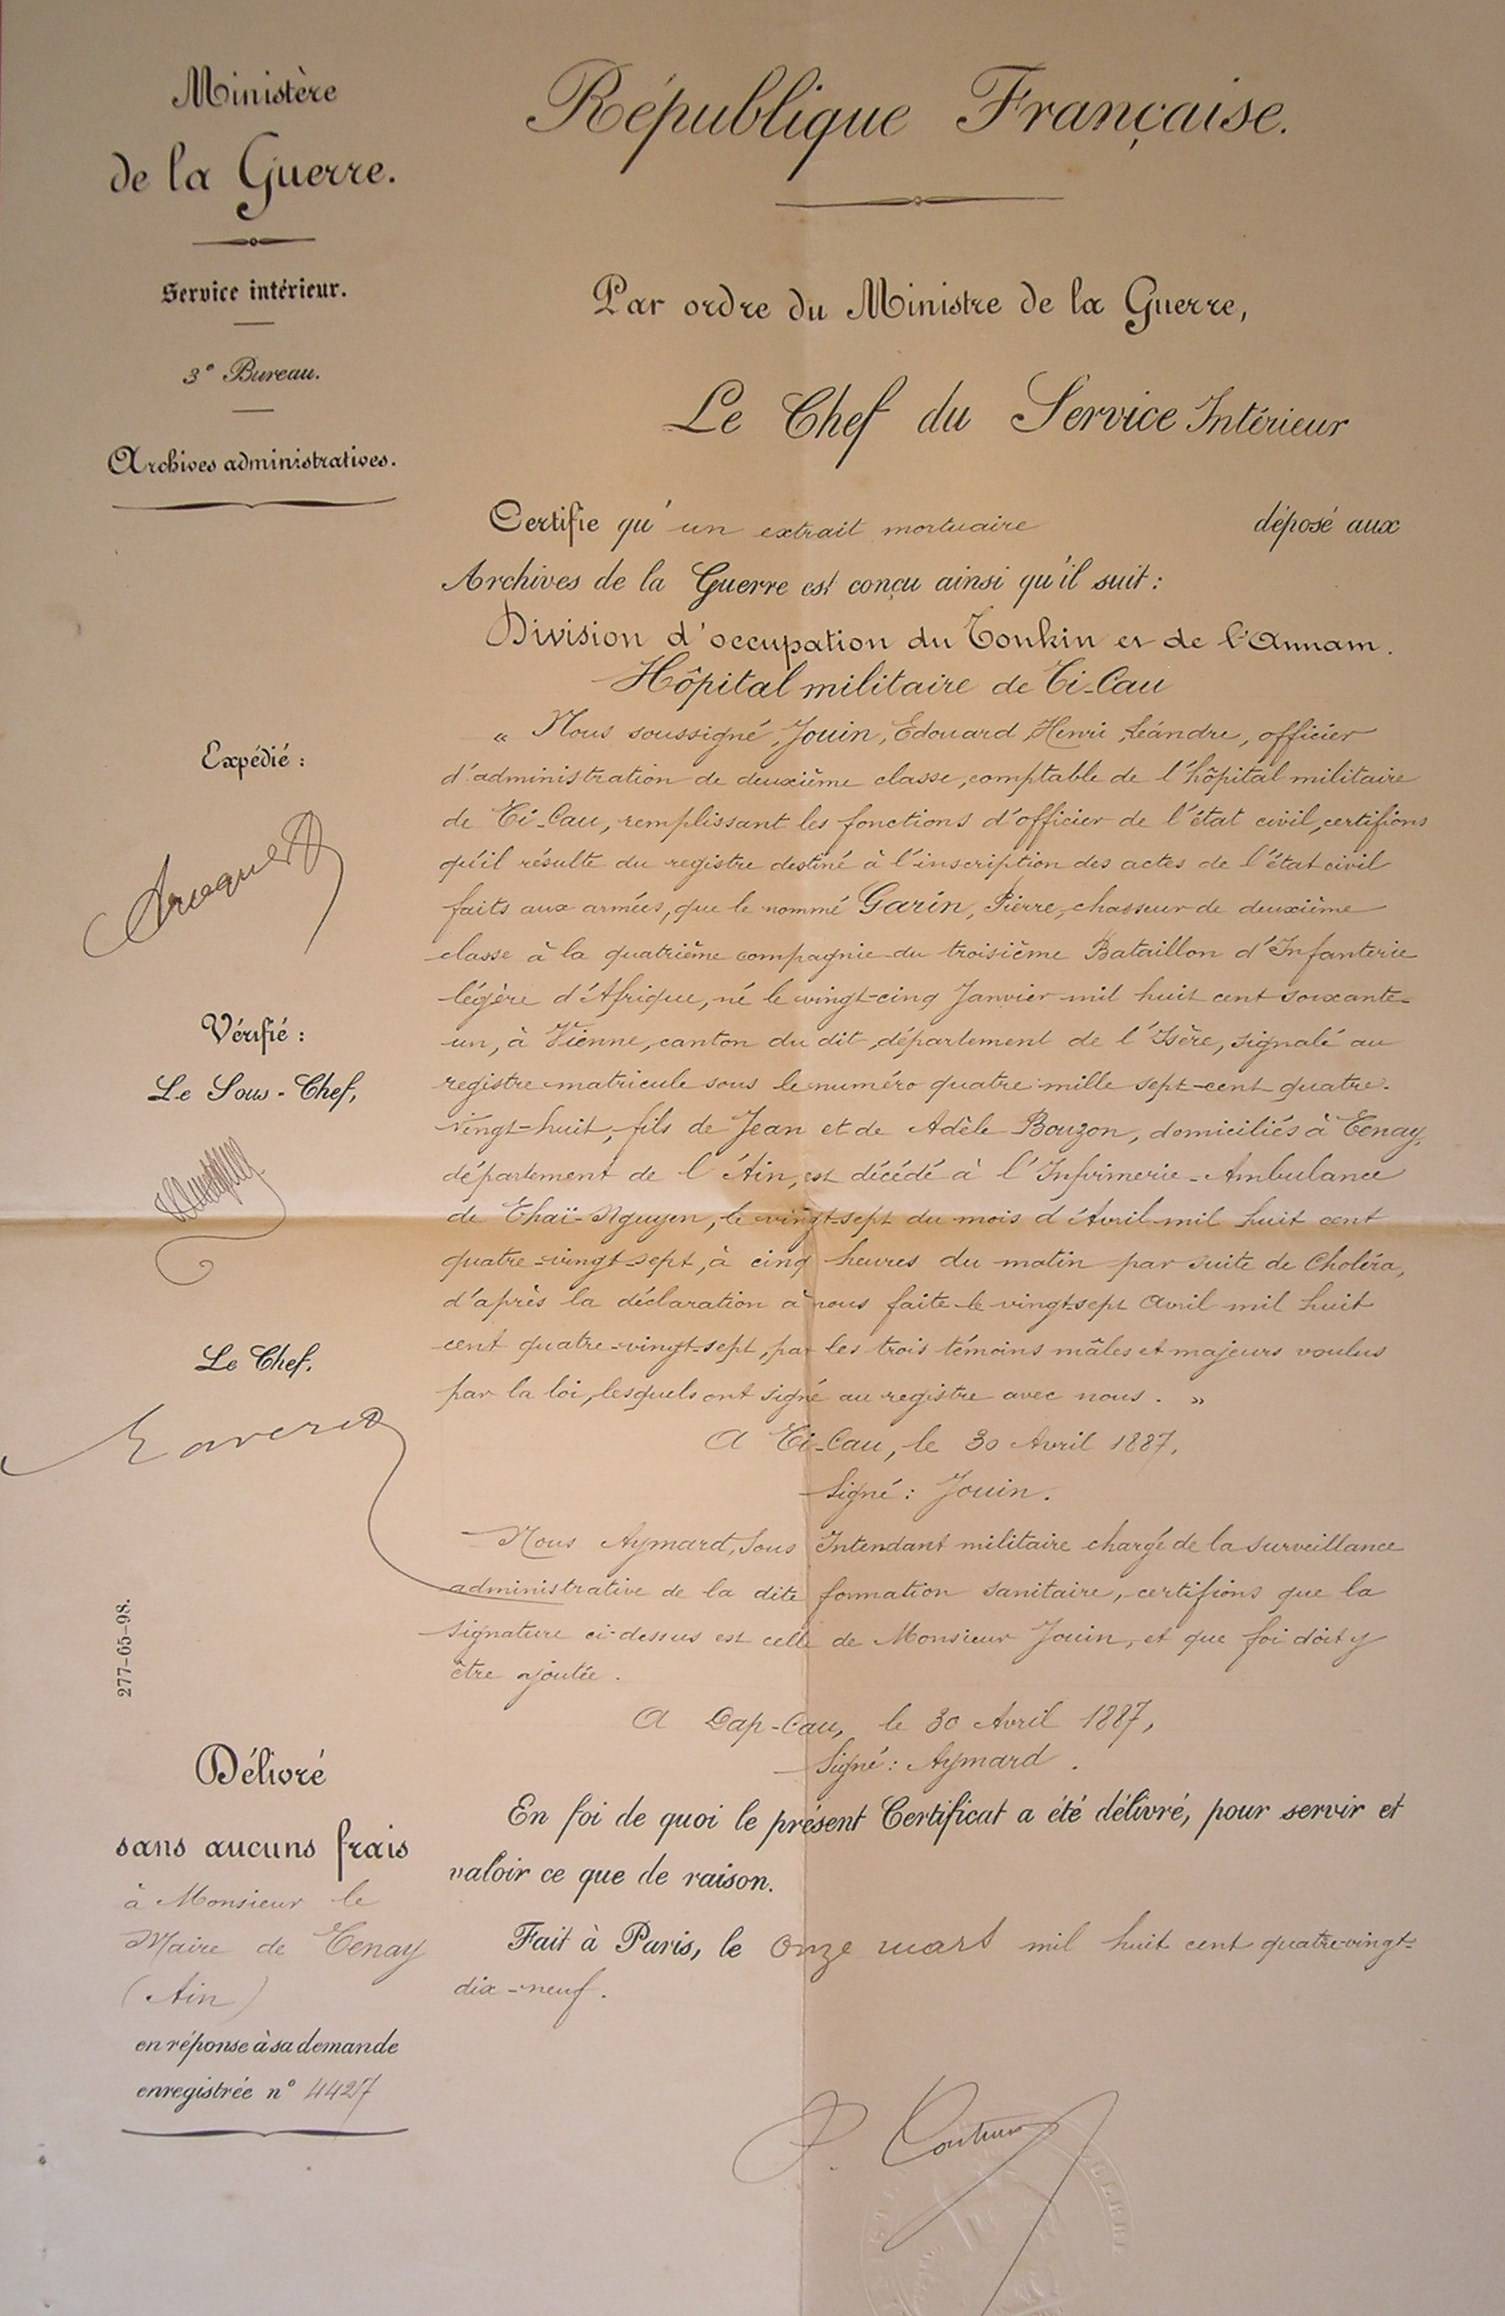 Ministère
de la Guerre.
Service intérieur.
3e Bureau.
Archives administratives.
République Française.
Par ordre du Ministre de la Guerre,
Le Chef du Service Intérieur
Certifie qu'un extrait mortuaire déposé aux
Archives de la Guerre est conçu ainsi qu'il suit :
Division d'occupation du Tonkin et de l'Annam.
Hôpital militaire de Ti-Cau
« Nous soussigné, Jouin, Edouard, Henri, Léandre, officier
d'administration de deuxième classe, comptable de l'hôpital militaire
de Ti-Cau, remplissant les fonctions d'officier de l'état civil, certifions
qu'il résulte du registre destiné à l'inscription des actes de l'état civil
faits aux armées, que le nommé Garin, Pierre, chasseur de deuxième
classe à la quatrième compagnie du troisième Bataillon d'Infanterie
légère d'Afrique, né le vingt-cinq Janvier mil huit cent soixante-
un, à Vienne, canton du dit, département de l'Isère, signalé au
registre matricule sous le numéro quatre mille sept-cent quatre-
vingt-huit, fils de Jean et de Adèle Bouzon, domiciliés à Tenay,
département de l'Ain, est décédé à l'Infirmerie-Ambulance
de Thaï-Nguyen, le vingt-sept du mois d'Avril mil huit cent
quatre-vingt-sept, à cinq heures du matin par suite de Choléra,
d'après la déclaration à nous faite le vingt-sept Avril mil huit
cent quatre-vingt-sept, par les trois témoins mâles et majeurs voulus
par la loi, lesquels ont signé au registre avec nous. »
A Ti-Cau, le 30 Avril 1887,
Signé : Jouin.
Nous Aymard, Sous Intendant militaire chargé de la surveillance
administrative de la dite formation sanitaire, certifions que la
signature ci-dessus est celle de Monsieur Jouin, et que foi doit y
être ajoutée.
A Dap-Cau, le 30 Avril 1887,
Signé : Aymard.
En foi de quoi le présent Certificat a été délivré, pour servir et
valoir ce que de raison.
Fait à Paris, le onze mars mil huit cent quatre-vingt-
dix-neuf.
Expédié :
Vérifié :
Le Sous-Chef,
Le Chef.
277-65-98.
Délivré
sans aucuns frais
à Monsieur le
Maire de Tenay
(Ain)
en réponse à sa demande
enregistrée n° 4427